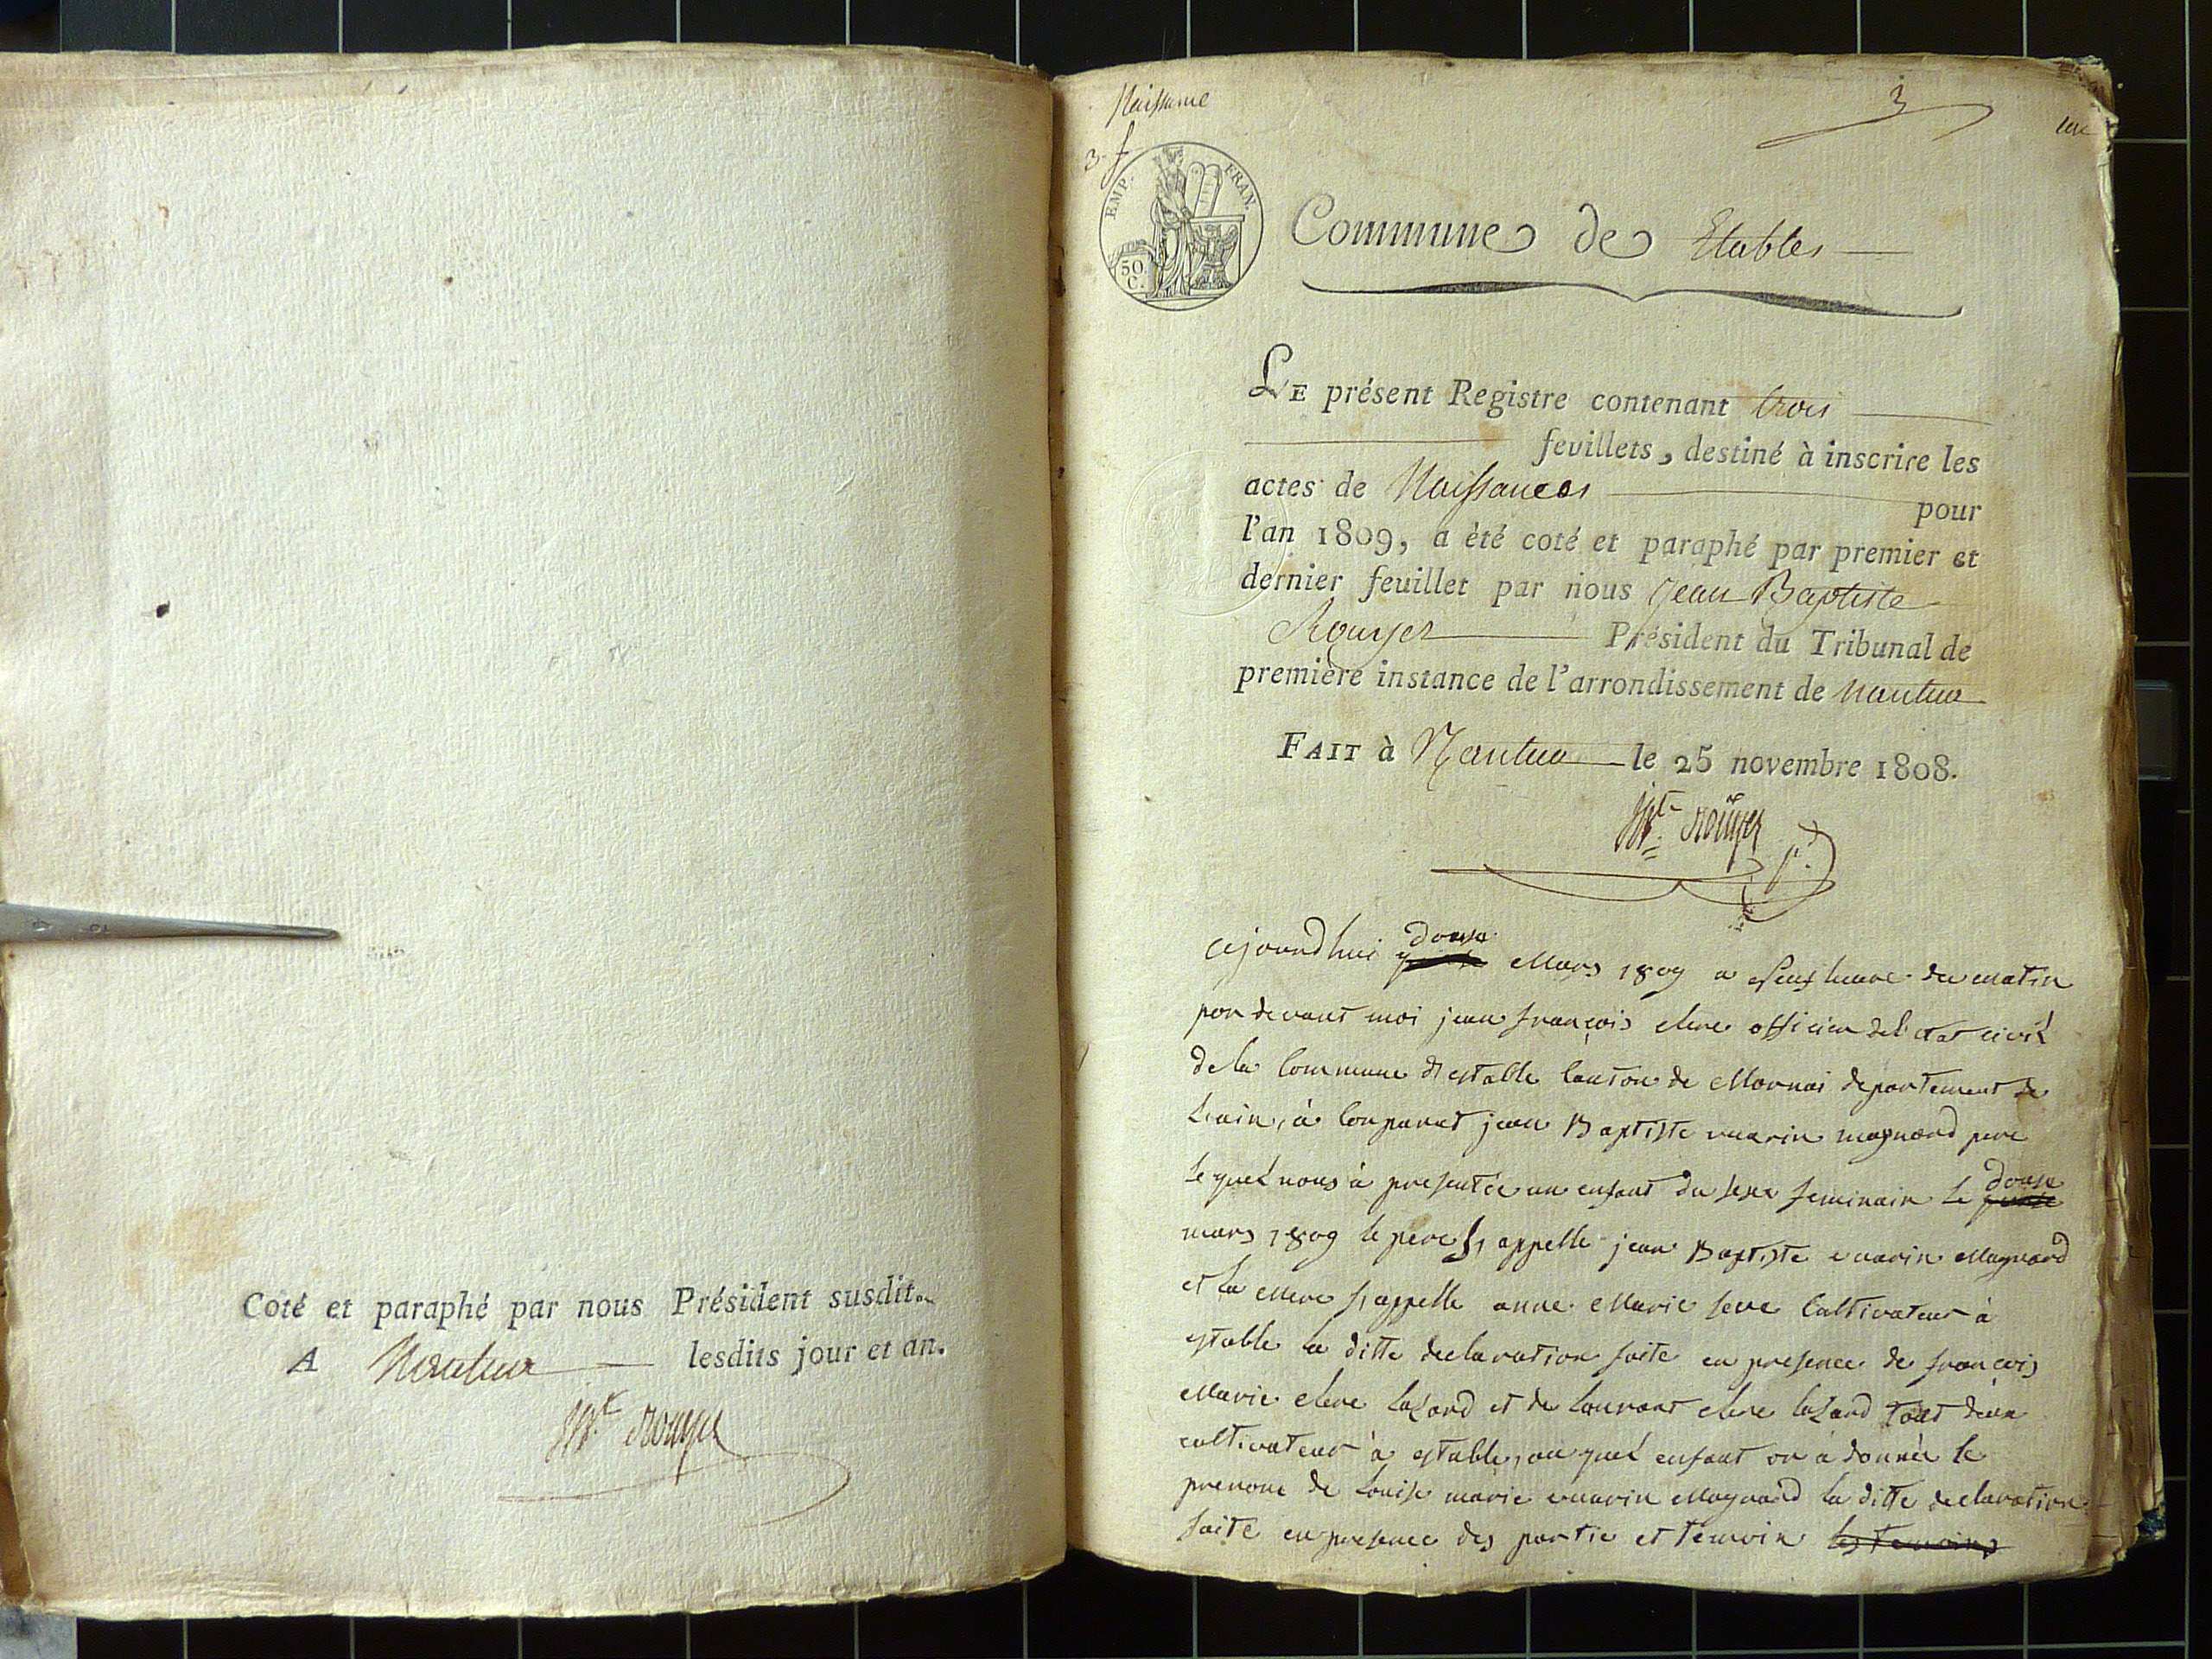 Coté et paraphé par nous Président susdit.
A Nantua lesdits jour et an.
JBte Rouyer
Naissance
3
3. f
EMP. FRAN.
50
C.
Commune de Etables
LE présent Registre contenant trois
feuillets, destiné à inscrire les
actes de Naissances pour
l'an 1809, a èté coté et paraphé par premier et
dernier feuillet par nous Jean Baptiste
Rouyer Président du Tribunal de
première instance de l'arrondissement de Nantua
FAIT à Nantua le 25 novembre 1808.
JBte Rouyer
p.
cejourdhui douse Mars 1809 a heure du matin
par devant moi jean françois officier del etat civil
de la Commune d'estable Canton de Mornai departement de
Lain, à Comparut jean Baptiste maznard pere
lequel nous à presentée un enfant du sexe feminain le douse
mars 1809 le pere s'appelle jean Baptiste Maznard
et la Mere s'appelle anne Marie seve Cultivateur à
estable la ditte declaration faite en presence de françois
Marie et de Laurant tout deux
cultivateur à estable, au quel enfant on à donnée le
prenom de Louise marie Maznard la ditte declaration
faite en presence des partie et temoin les temoins